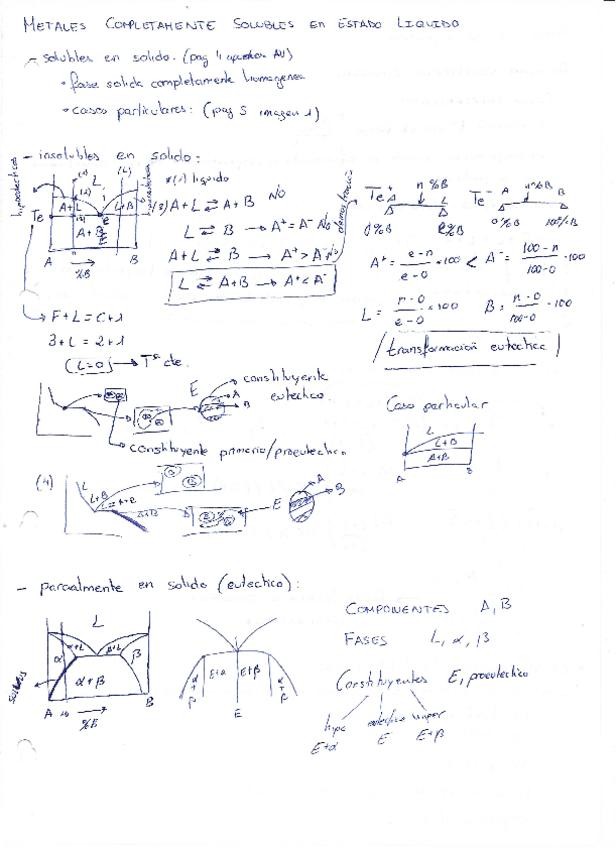 METALES COMPLETAMENTE SOLUBLES EN ESTADO LIQUIDO
- solubles en solido. (pag 4 apuntes AV)
• fase solida completamente homogenea
• casos particulares: (pag 5 imagen 1)
- insolubles en solido:
hipoeutecticos
(1) (L)
L
A+L
L+B
Te
e
A+B
A
%B
B
*(1) liquido
(3) A+L ⇄ A+B No
L ⇄ B → A⁺ = A⁻ No
A+L ⇄ B → A⁺ > A⁻ No
L ⇄ A+B → A⁺ < A⁻
demostración
Te⁺ A n%B L
0%B e%B
Te⁻ A n%B B
0%B 100%B
A⁺ = e-n / e-0 · 100 < A⁻ = 100-n / 100-0 · 100
L = n-0 / e-0 · 100 B = n-0 / 100-0 · 100
transformación eutectica
F+L = C+1
3+L = 2+1
(L=0) → Tª cte.
E
constituyente
eutectico
A
B
constituyente primario/proeutectico
Caso particular
L
L+B
A+B
A B
(4)
L
L+B
E
A
B
- parcialmente en solido (eutectico):
L
α+L
β+L
α
β
α+β
A
%B
B
E+α E+β
E
COMPONENTES A, B
FASES L, α, β
Constituyentes E, proeutectico
hipo eutectico hiper
E+α E E+β